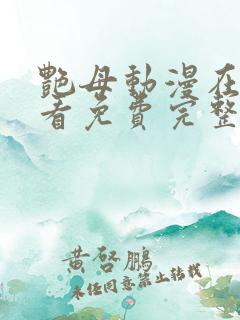 艷母動漫在
看免費完整
黃啓鵬
未經同意禁止轉載